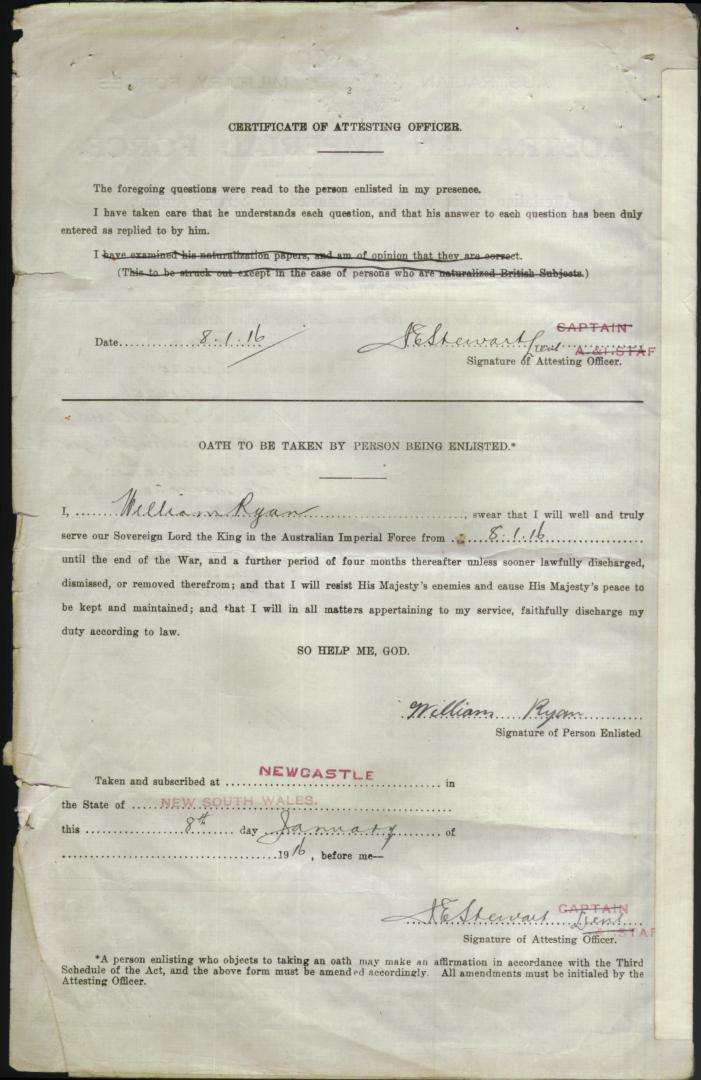 2
CERTIFICATE OF ATTESTING OFFICER.
The foregoing questions were read to the person enlisted in my presence.
I have taken care that he understands each question, and that his answer to each question has been duly
entered as replied to by him.
I have examined his naturalization papers, and am of opinion that they are correct.
(This to be struck out except in the case of persons who are naturalized British Subjects.)
Date 8.1.16 Stewart Lieut CAPTAIN
A. & I. STAF
Signature of Attesting Officer.
OATH TO BE TAKEN BY PERSON BEING ENLISTED.*
I, William Ryan, swear that I will well and truly
serve our Sovereign Lord the King in the Australian Imperial Force from 8.1.16
until the end of the War, and a further period of four months thereafter unless sooner lawfully discharged,
dismissed, or removed therefrom; and that I will resist His Majesty's enemies and cause His Majesty's peace to
be kept and maintained; and that I will in all matters appertaining to my service, faithfully discharge my
duty according to law.
SO HELP ME, GOD.
William Ryan
Signature of Person Enlisted
Taken and subscribed at NEWCASTLE in
the State of NEW SOUTH WALES.
this 8th day January of
1916, before me—
Stewart Lieut CAPTAIN
STAF
Signature of Attesting Officer.
*A person enlisting who objects to taking an oath may make an affirmation in accordance with the Third
Schedule of the Act, and the above form must be amended accordingly. All amendments must be initialed by the
Attesting Officer.